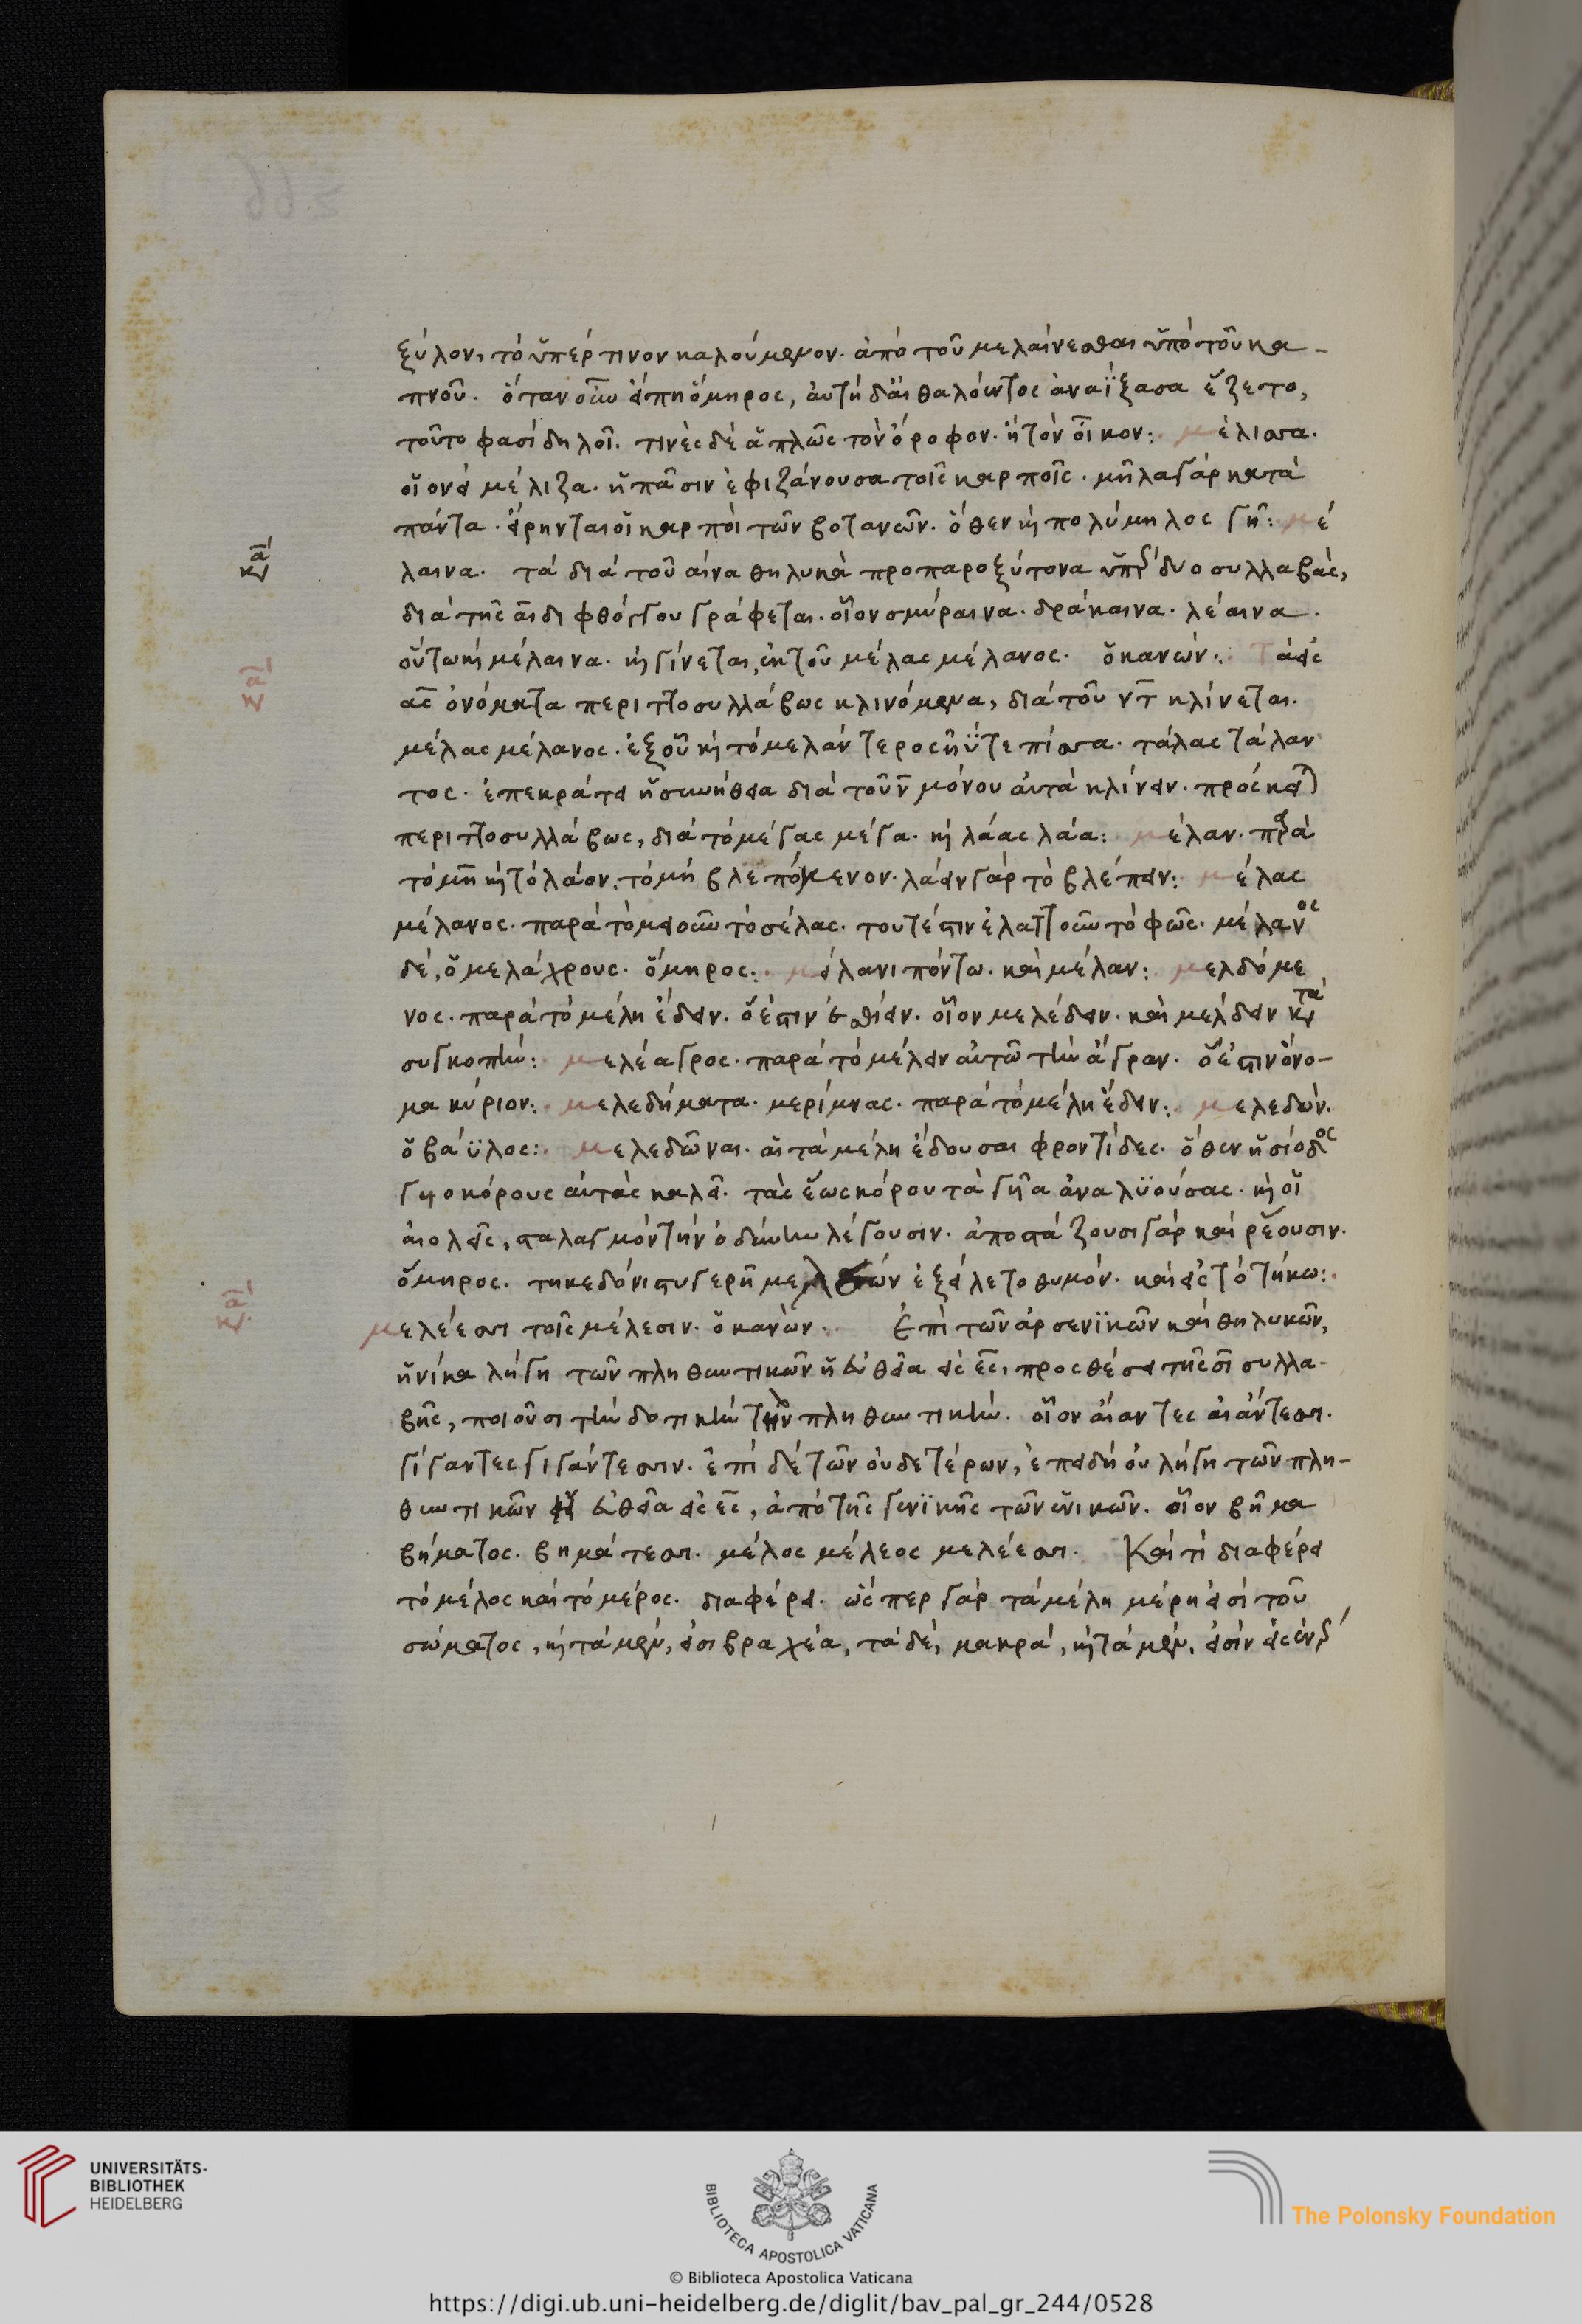 ξύλον, τὸ ὑπέρτινον καλούμενον· ἀπὸ τοῦ μελαίνεσθαι ὑπὸ τοῦ κα-
πνοῦ. ὅταν οὖν εἴπη ὅμηρος, αὐτὴ δ' αἰθαλόεντος ἀναΐξασα ἕζετο,
τοῦτο φασὶ δηλοῖ. τινὲς δὲ ἁπλῶς τὸν ὄροφον· ἢ τὸν οἶκον: μέλισσα.
οἱονεὶ μέλιζα. ἡ πᾶσιν ἐφιζάνουσα τοῖς καρποῖς. μῆλα γὰρ κατὰ
πάντα. εἴρηνται οἱ καρποὶ τῶν βοτανῶν. ὅθεν καὶ πολύμηλος γῆ: μέ
λαινα. τὰ διὰ τοῦ αινα θηλυκὰ προπαροξύτονα ὑπὲρ δύο συλλαβὰς,
διὰ τῆς αι διφθόγγου γράφεται. οἷον σμύραινα. δράκαινα. λέαινα.
οὕτω καὶ μέλαινα. καὶ γίνεται ἐκ τοῦ μέλας μέλανος. ὁ κανών: Τὰ εἰς
ας ὀνόματα περιττοσυλλάβως κλινόμενα, διὰ τοῦ ντ κλίνεται.
μέλας μέλανος. ἐξ οὗ καὶ τὸ μελάντερος ἠΰτε πίσσα. τάλας τάλαν
τος. ἐπεκράτει ἡ συνήθεια διὰ τοῦ ν μόνου αὐτὰ κλίνειν. πρόσκειται
περιττοσυλλάβως, διὰ τὸ μέγας μέγα. καὶ λάας λάα: μέλαν. παρὰ
τὸ μη καὶ τὸ λάον. τὸ μὴ βλεπόμενον. λάειν γὰρ τὸ βλέπειν: μέλας
μέλανος. παρὰ τὸ μειοῦν τὸ σέλας. τουτέστιν ἐλαττοῦν τὸ φῶς. μέλανος
δέ, ὁ μελάχρους. ὅμηρος: μείλανι πόντω. καὶ μέλαν: μελδόμε
νος. παρὰ τὸ μέλη ἔδειν. ὅ ἐστιν ἐσθίειν. οἷον μελέδειν. καὶ μέλδειν κατὰ
συγκοπήν: μελέαγρος. παρὰ τὸ μέλειν αὐτῶ τὴν ἄγραν. ὅ ἐστιν ὄνο-
μα κύριον: μελεδήματα. μερίμνας. παρὰ τὸ μέλη ἔδειν: μελεδών.
ὁ βαΰλος: μελεδῶναι. αἱ τὰ μέλη ἔδουσαι φροντίδες. ὅθεν ἡσίοδος
γυιοκόρους αὐτὰς καλεῖ. τὰς ἕως κόρου τὰ γυῖα ἀναλϋούσας. καὶ οἱ
αἰολεῖς, σταλαγμὸν τὴν ὀδύνην λέγουσιν. ἀποστάζουσι γὰρ καὶ ῥέουσιν.
ὅμηρος. τηκεδόνι στυγερῆ μελῶν ἐξείλετο θυμόν. καὶ εἰς τὸ τήκω:
μελέεσσι τοῖς μέλεσιν. ὁ κανών: Ἐπὶ τῶν ἀρσενϊκῶν καὶ θηλυκῶν,
ἡνίκα λήγη τῶν πληθυντικῶν ἡ εὐθεῖα εἰς ες, προσθέσει τῆς σι συλλα-
βῆς, ποιοῦσι τὴν δοτικὴν τῶν πληθυντικήν. οἷον αἴαντες αἰάντεσσι.
γίγαντες γιγάντεσσιν. ἐπὶ δὲ τῶν οὐδετέρων, ἐπειδὴ οὐ λήγη τῶν πλη-
θυντικῶν ἡ εὐθεῖα εἰς ες, ἀπὸ τῆς γενϊκῆς τῶν ἑνικῶν. οἷον βῆμα
βήματος. βημάτεσσι. μέλος μέλεος μελέεσσι. Καὶ τί διαφέρει
τὸ μέλος καὶ τὸ μέρος. διαφέρει. ὥσπερ γὰρ τὰ μέλη μέρη εἰσὶ τοῦ
σώματος, καὶ τὰ μὲν, εἰσι βραχέα, τὰ δὲ, μακρά, καὶ τὰ μὲν, εἰσὶν
UNIVERSITÄTS-
BIBLIOTHEK
HEIDELBERG
BIBLIOTECA APOSTOLICA VATICANA
The Polonsky Foundation
© Biblioteca Apostolica Vaticana
https://digi.ub.uni-heidelberg.de/diglit/bav_pal_gr_244/0528